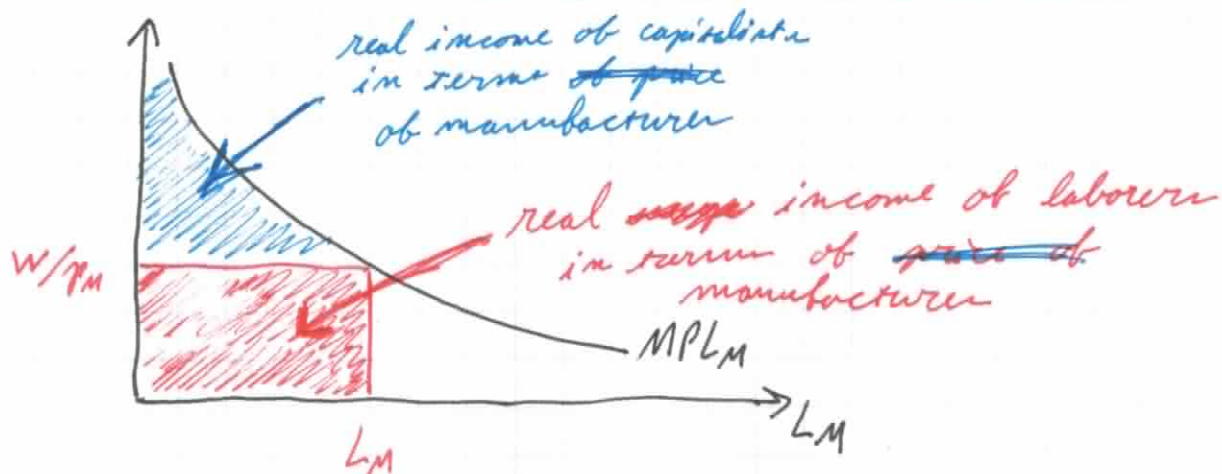 real income of capitalists
in terms of price
of manufactures
real wage income of laborers
in terms of price of
manufactures
W/PM
MPLM
LM
LM